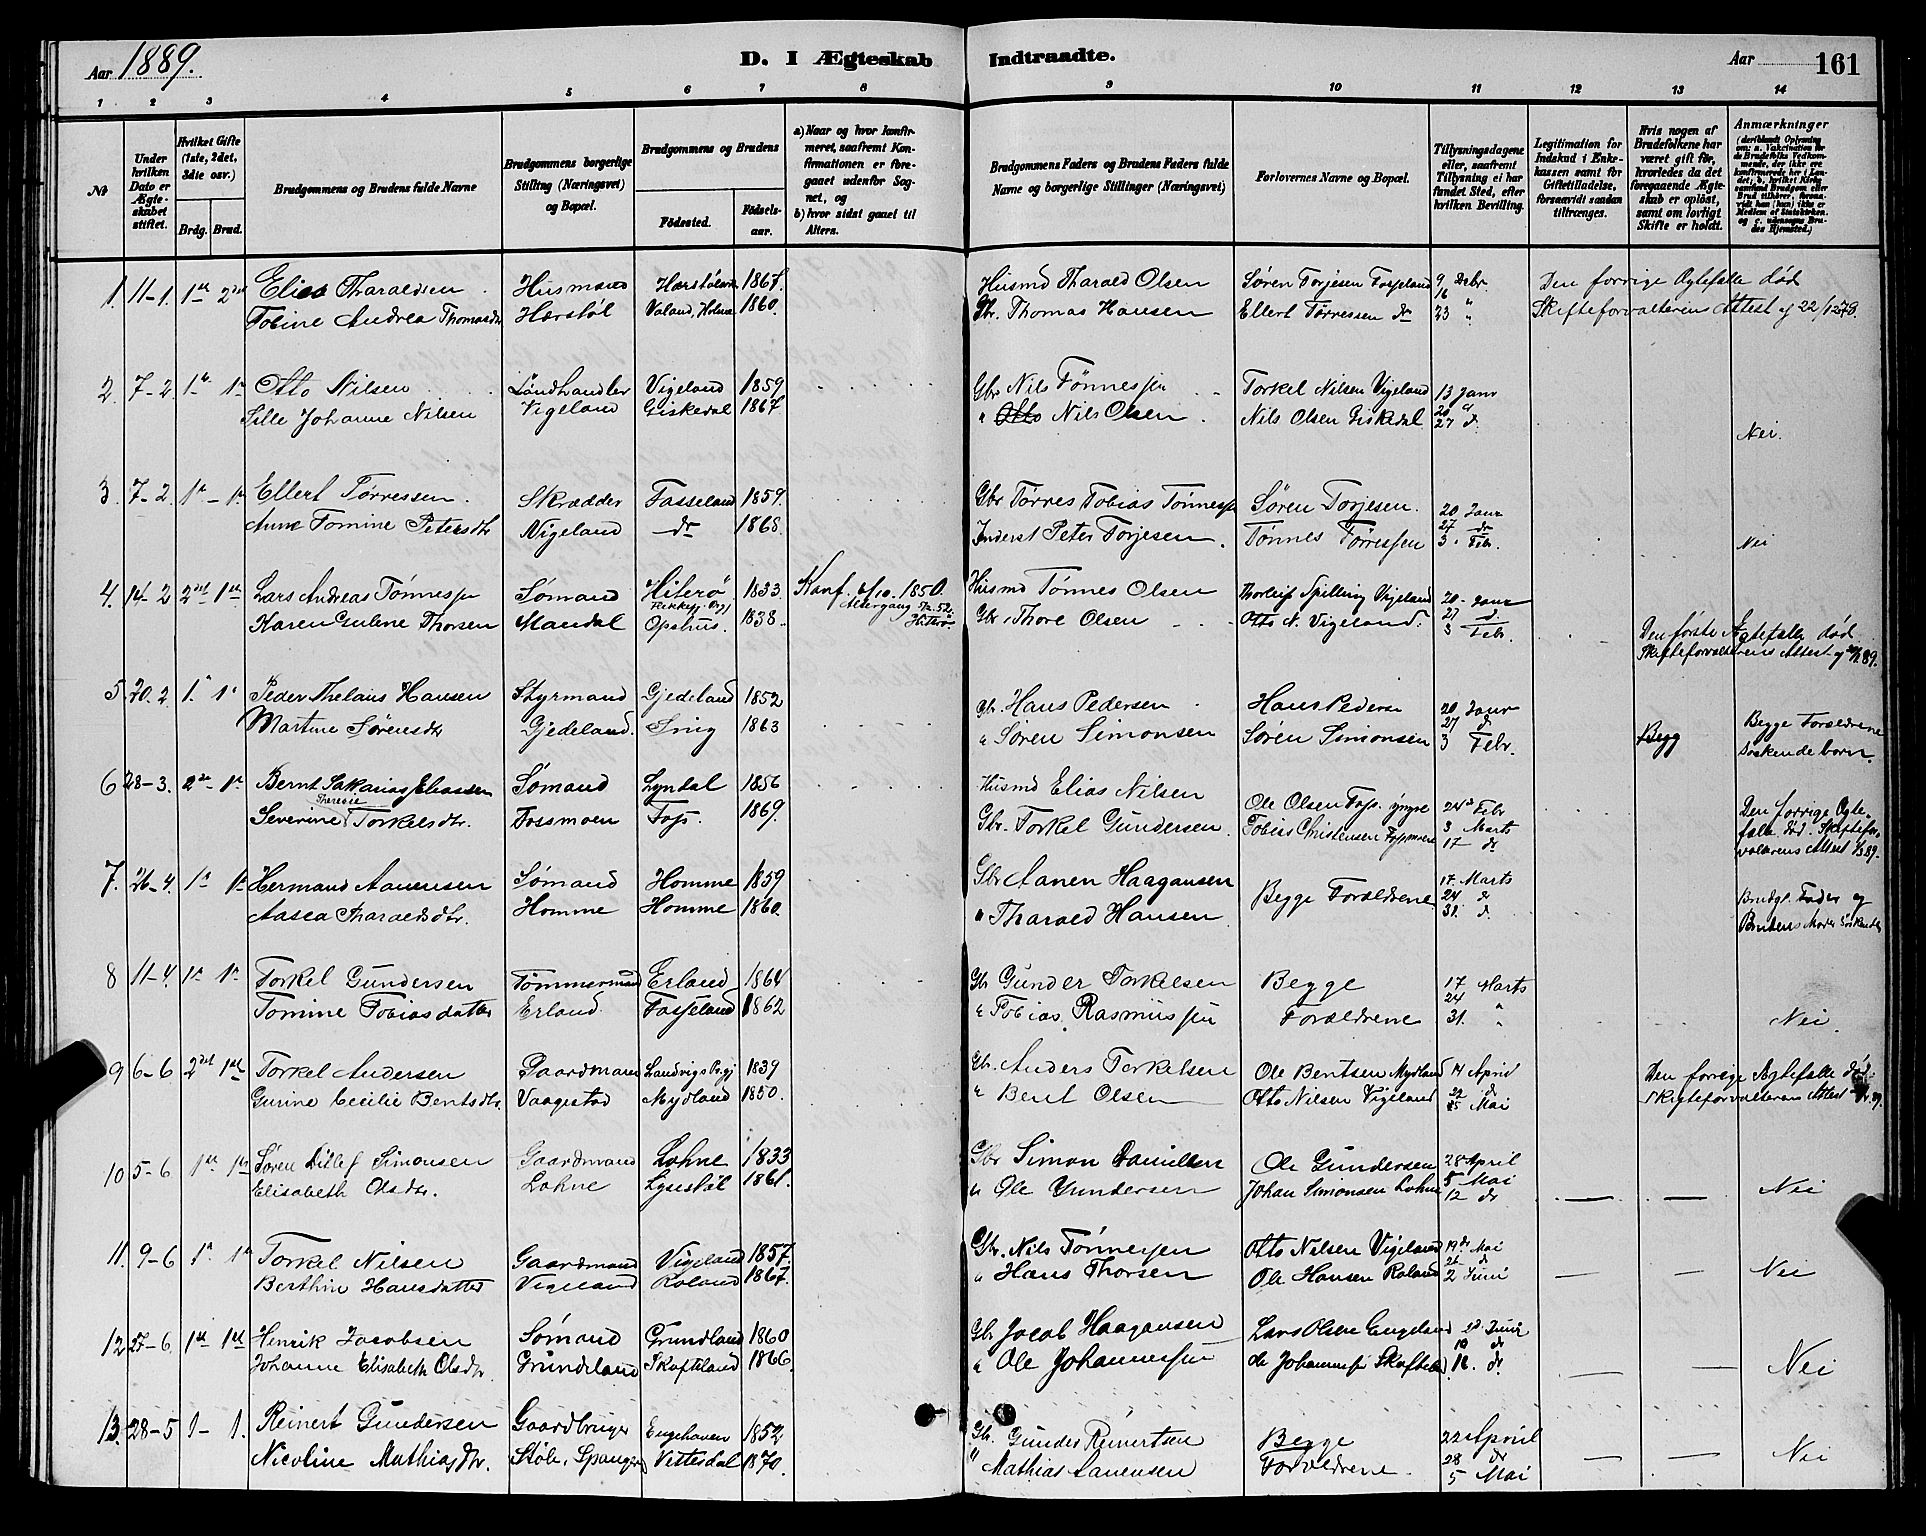 Aar 1889.
D. I Ægteskab Indtraadte.
Aar 161
1 2 3 4 5 6 7 8 9 10 11 12 13 14
No
Under hvilken Dato er Ægteskabet stiftet.
Hvilket Gifte (1ste, 2det, 3die osv.)
Brdg. Brud.
Brudgommens og Brudens fulde Navne
Brudgommens borgerlige Stilling (Næringsvei) og Bopæl.
Brudgommens og Brudens
Fødested.
Fødselsaar.
a) Naar og hvor konfirmeret, saafremt Konfirmationen er foregaaet udenfor Sognet, og
b) hvor sidst gaaet til Alters.
Brudgommens Faders og Brudens Faders fulde Navne og borgerlige Stillinger (Næringsvei)
Forlovernes Navne og Bopæl.
Tillysningsdagene eller, saafremt Tillysning ei har fundet Sted, efter hvilken Bevilling.
Legitimation for Indskud i Enkekassen samt for Giftetilladelse, forsaavidt saadan tiltrænges.
Hvis nogen af Brudefolkene har været gift før, hvorledes da det foregaaende Ægteskab er opløst, samt om lovligt Skifte er holdt.
Anmærkninger
1. 11-1. 1ste 2det Elias Tharaldsen Husmand 1867. Husmd Tharald Olsen Søren Torjesen Fosseland 9 Debr. Den forrige Ægtefælle død
Tobine Andrea Thomasdtr Hærstøl Valand, Holme 1860. Gbr. Thomas Hansen Ellert Tørressen do 16 23 " Skifteforvalterens Attest af 22/12 78.
2. 7-2. 1ste 1ste Otto Nilsen Landhandler Vigeland 1859 Gbr Nils Tønnessen Torkel Nilsen Vigeland 13 Janr
Sille Johanne Nilsen Vigeland Giskedal 1867 " Otto Nils Olsen Nils Olsen Giskedal 20 " 27 d. Nei.
3. 7-2. 1ste-1ste Ellert Tørressen Skrædder Fasseland 1859. Gbr Tørres Tobias Tønnessen Søren Torjesen. 20 Janr
Anne Tomine Petersdtr Vigeland do 1868. Inderst Peter Torjesen. Tønnes Tørressen 27 do 3. Febr. Nei
4. 14-2 2det 1ste Lars Andreas Tønnessen Sømand Hiterø 1833. Konf. 6/10. 1850. Husmd Tønnes Olsen Thorleif Spilling Vigeland 20-Janr
Karen Guline Thorsen Mandal Opshus. 1838. Altergang Hitterø Gbr. Thore Olsen Otto N. Vigeland. 27 d. 3 Febr. Den første Ægtefælle død
Skifteforvalterens Attest
5 20. 2. 1. 1. Peder Thelaus Hansen Styrmand Gjedeland 1852 Gbr. Hans Pedersen Hans Pedersen 20 Janr
Martine Sørensdtr Gjedeland. Snig 1863 " Søren Simonsen Søren Simonsen 27 d 3 Febr. Begg Begge Forældrene Søskendebørn.
6 28-3. 2det 1ste Bernt Sakarias Eliassen Sømand Lyndal 1856 Husmd Elias Nilsen Ole Olsen Foss. yngre 24de Febr
Severine Therese Torkelsdtr. Fossmoen Foss. 1869. Gbr. Torkel Gundersen. Tobias Christensen Fossmoen 3 Marts 17 do Den forrige Ægtefælle død. Skifteforvalterens Attest
7. 26-4. 1ste 1ste Hermand Aanensen Sømand Homme 1859 Gbr Aanen Haagansen Begge Forældrene 17. Marts
Aasea Tharaldsdtr. Homme Homme 1860. " Tharald Hansen 24 d 31. d. Brudg. Fader og Brudens Moder Søskende
8 11-4. 1ste 1ste Torkel Gundersen Tømmermand Erland 1864 Gbr Gunder Torkelsen Begge 17 Marts
Tomine Tobiasdatter Erland. Fasseland 1862 " Tobias Rasmussen Forældrene 24 31. " Nei.
9 6-6 2det 1ste Torkel Andersen Gaardmand Landvigs Prgj 1839 Gbr. Anders Torkelsen Ole Bentsen Mydland 14 April Den forrige Ægtefælle død.
Gurine Cecilie Bentsdtr. Vaagestad Mydland 1850. " Bent Olsen Otto Nilsen Vigeland 22 d Mai Skifteforvalterens Attest
10 5-6 1ste 1ste Søren Ditlef Simonsen Gaardmand Lohne 1833 Gbr Simon Danielsen Ole Gundersen 28 April
Elisabeth Olsdtr. Lohne Lysestøl 1861. " Ole Gundersen Johan Simonsen Lohne 5 Mai 12 do — — Nei
11. 9-6 1ste 1ste Torkel Nilsen Gaardmand Vigeland 1857. Gbr. Nils Tønnessen Otto Nilsen Vigeland 19de Mai
Berthine Hansdatter Vigeland Roland 1867. " Hans Thorsen Ole Hansen Roland 26 d 2 Juni — — Nei
12 27-6. 1ste 1ste Henrik Jacobsen Sømand Grundland 1860 Gbr Jacob Haagansen Lars Olsen Engeland Juni
Johanne Elisabeth Olsdtr. Grundeland Skofteland 1866. " Ole Johannessen Ole Johannessen Skofteland 16. d. — — Nei
13. 28-5 1- 1. Reinert Gundersen Gaardbruger Engehaven 1852 Gbr. Gunder Reinertsen Begge 22 April
Nicoline Mathiasdtr. Støle, Spangereid Vittesdal 1870. " Mathias Aanensen Forældrene. 28 do 5 Mai — — Nei